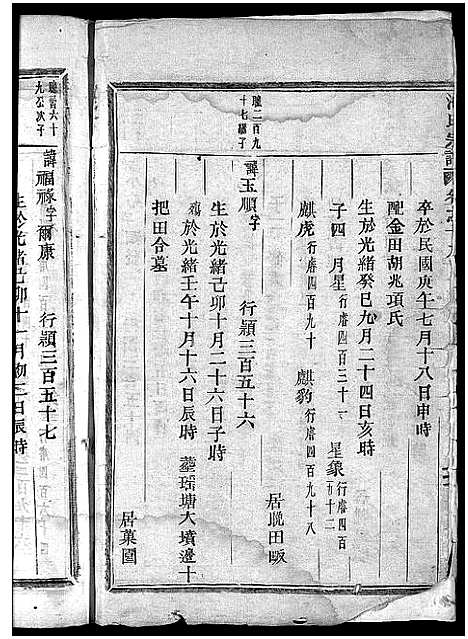 氏宗譜
卒於民國庚午七月十八日申時
配金田胡兆項氏
生於光緒癸巳九月二十四日亥時
子四 月星行睿四百三十一 星象行睿四百五十二
麒虎行睿四百九十 麒豹行睿四百九十八
居晚田畈
臚二百九十七繼子
諱玉順字 行顯三百五十六
生於光緒己卯十月二十六日子時
於光緒壬午十月十六日辰時 塟瑶塘大墳邊十
把田合墓
居菓園
九公次子
諱福祿字爾康 行顯三百五十七
生於光緒己卯十一月初三日辰時